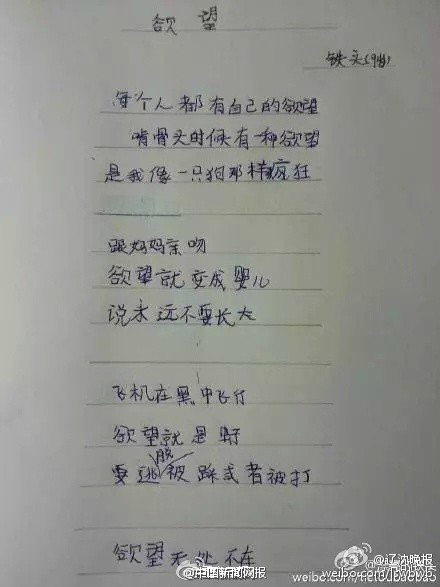 欲望
铁头(9岁)
每个人都有自己的欲望
啃骨头时候有一种欲望
是我像一只狗那样疯狂
跟妈妈亲吻
欲望就变成婴儿
说永远不要长大
飞机在黑中飞行
欲望就是野
要逃脱被踩或者被打
欲望无处不在
@中国新闻网报
@辽沈晚报